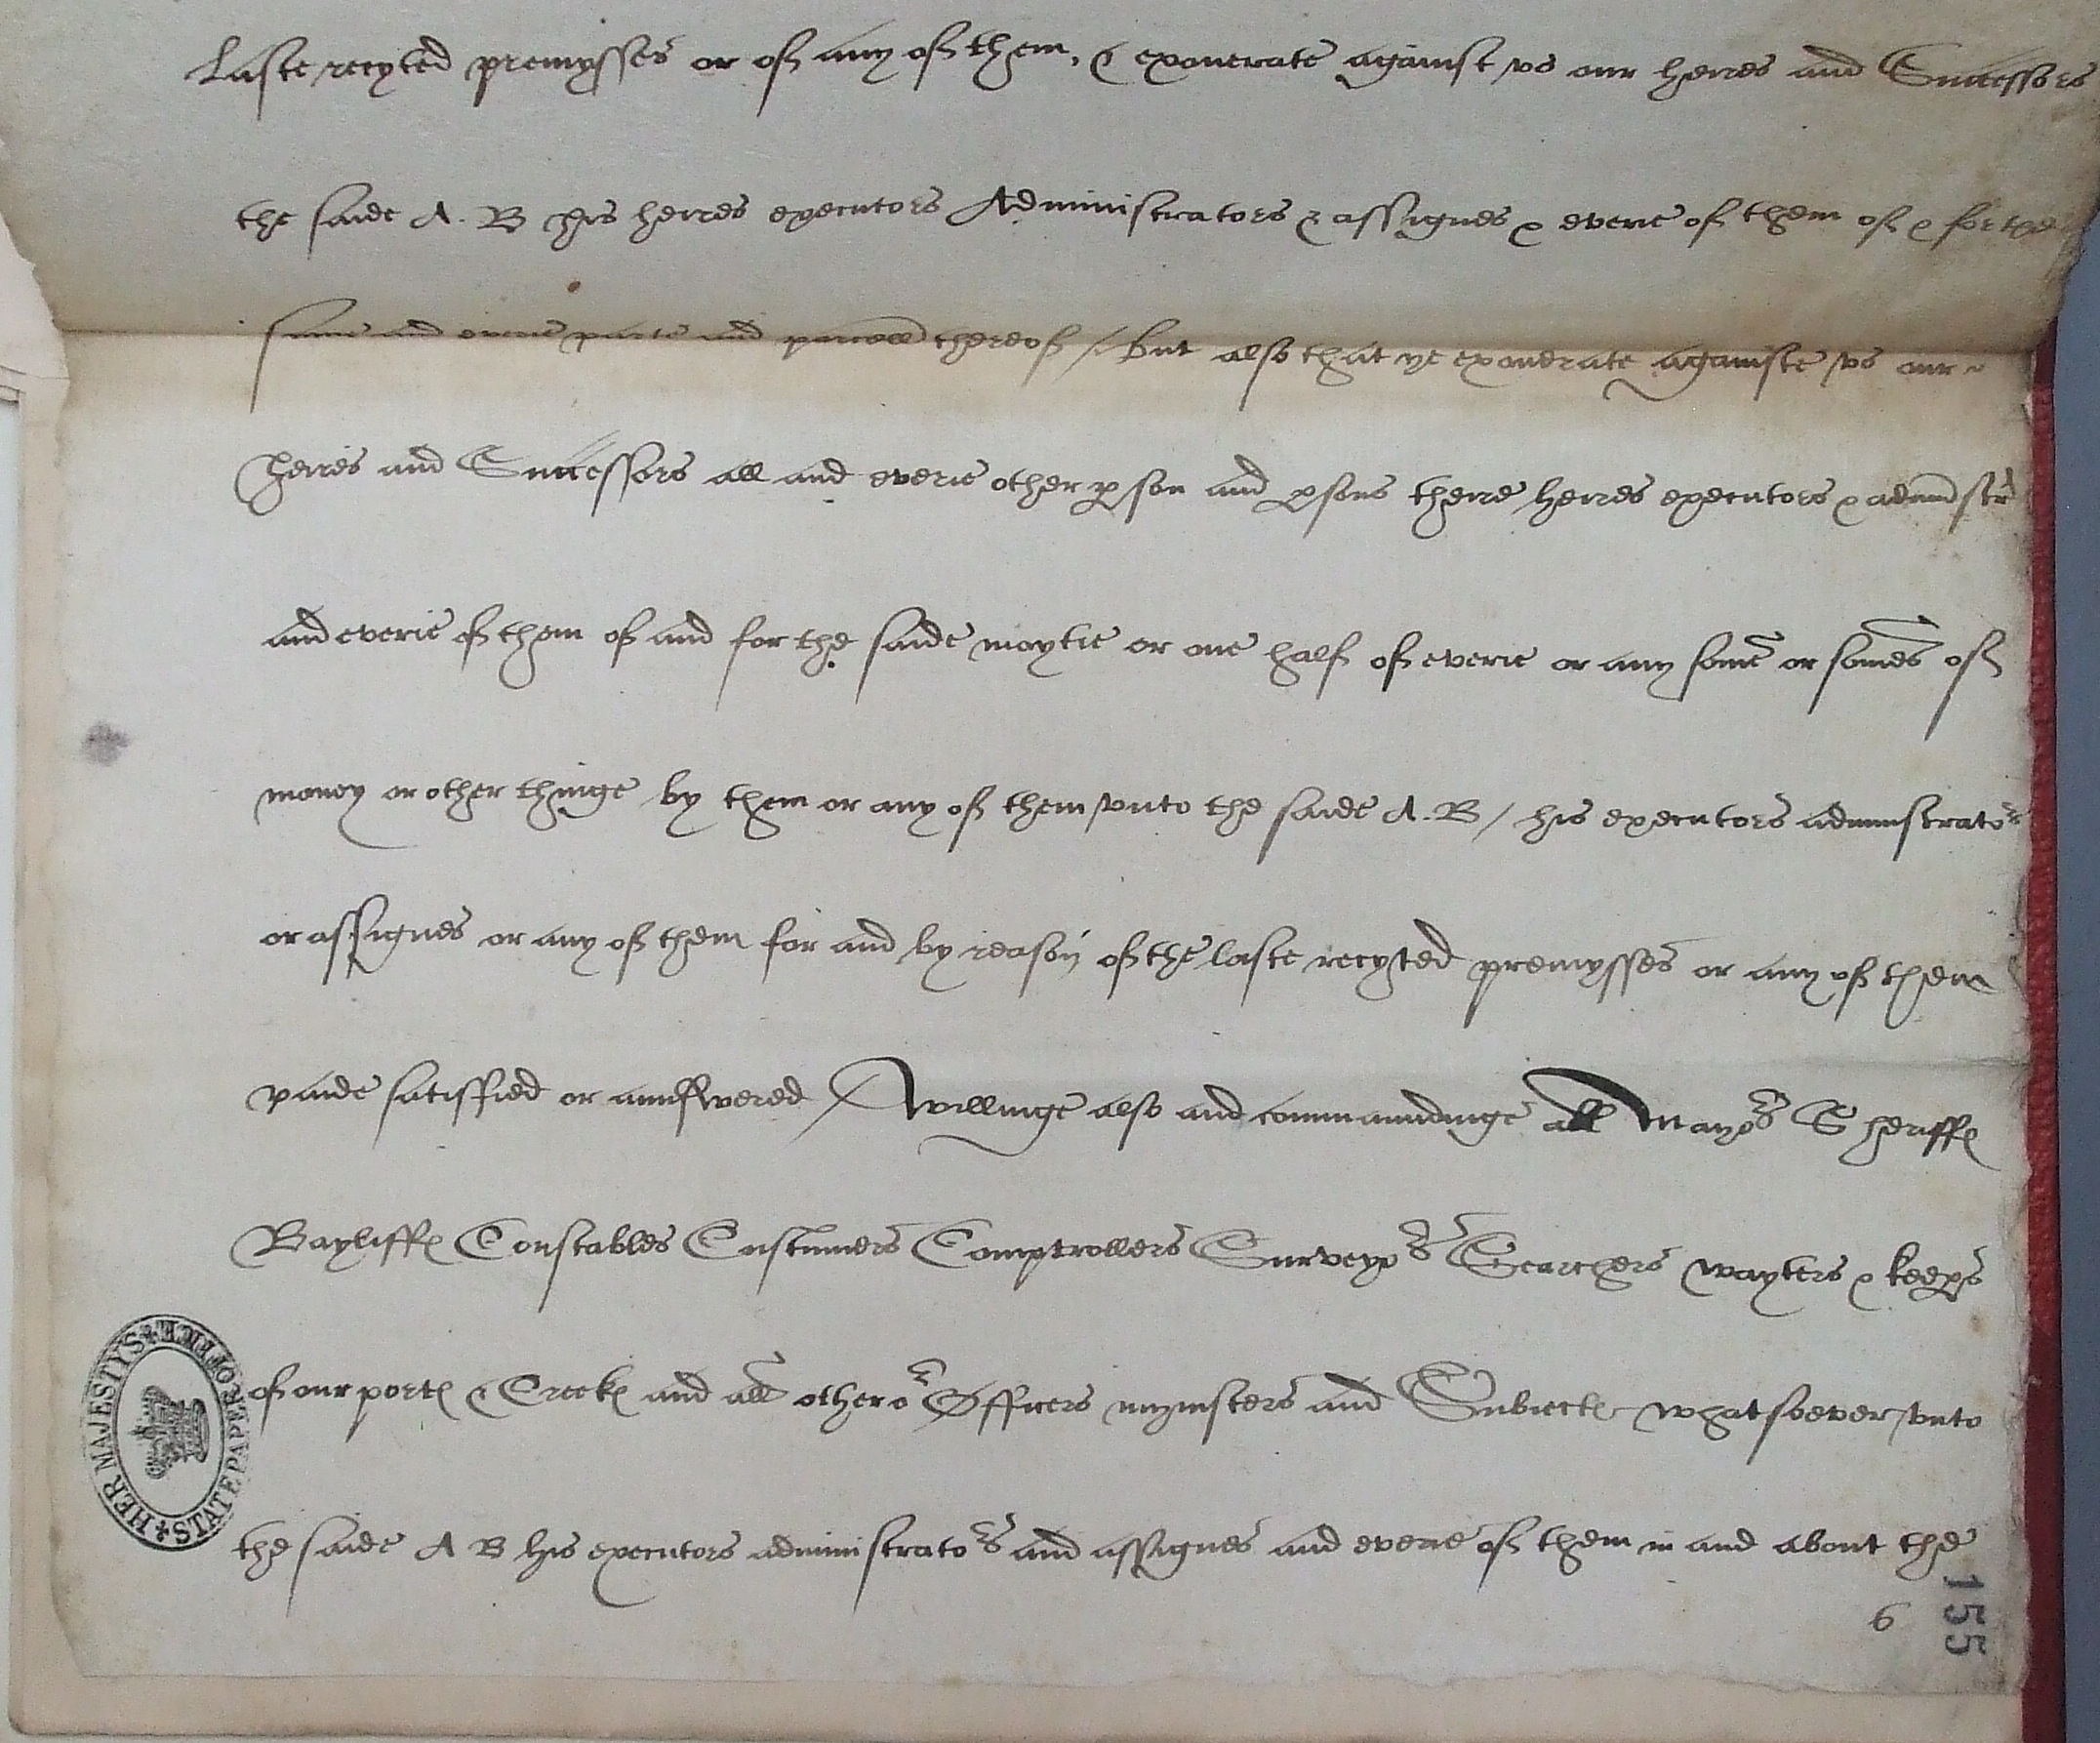 laste recyted premysses or of any of them, & exonerate against vs our heires and Successors
the saide A. B his heires executors Administrators & assignes & everie of them of & for the
same and everie parte and parcell thereof / but also that ye exonerate againste vs our
heires and Successors all and everie other pson and psons theire heires executors & adminstr
and everie of them of and for the saide moytie or one half of everie or any some or somes of
money or other thinge by them or any of them vnto the saide A. B / his executors administrators
or assignes or any of them for and by reason of the laste recyted premysses or any of them
paide satisfied or aunswered / Willinge also and commaundinge all Mayors Sheriffes
Bayliffes Constables Custumers Comptrollers Surveyors Searchers wayters & keeps
of our portes & Creekes and all other or Officers mynisters and Subiectes whatsoever vnto
the saide A B his executors administrators and assignes and everie of them in and about the
6
155
HER MAJESTYS STATE PAPER OFFICE